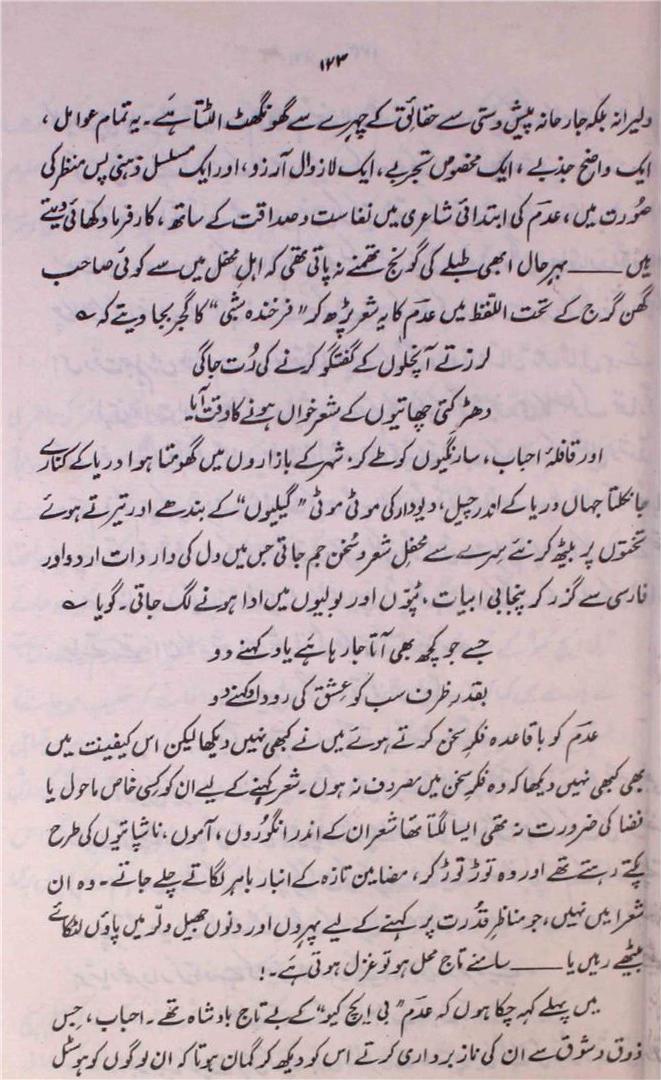 ۱۲۳
دلیرانہ بلکہ جارحانہ پیش دستی سے حقائق کے چہرے سے گھونگھٹ الٹتا ہَے۔ یہ تمام عوامل ،
ایک واضح جذبے ، ایک مخصوص تجربے، ایک لازوال آرزو، اور ایک مسلسل ذہنی پس منظر کی
صُورت میں، عدَم کی ابتدائی شاعری میں نفاست و صداقت کے ساتھ، کارفرما دکھائی دیتے
ہیں ــــــ بہرحال ابھی طبلے کی گونج تھمنے نہ پاتی تھی کہ اہلِ محفل میں سے کوئی صاحب
گھن گرج کے تحت اللفظ میں عدَم کا یہ شعر پڑھ کر "فرخندہ شبی" کا گجر بجا دیتے کہ ؎
لرزتے آنچلوں کے گفتگو کرنے کی رُت جاگی
دھڑکتی چھاتیوں کے شعر خواں ہونے کا وقت آیا
اور قافلۂ احباب، سارنگیوں کو طے کر۔ شہر کے بازاروں میں گھومتا ہوا دریا کے کنارے
جا نکلتا جہاں دریا کے اندر چیل، دیودار کی موٹی موٹی "گیلیوں" کے بندھے اور تیرتے ہوئے
تختوں پر بیٹھ کر نئے سِرے سے محفلِ شعر و سُخن جم جاتی جس میں دل کی واردات اردو اور
فارسی سے گزر کر پنجابی ابیات، ٹپّوں اور بولیوں میں ادا ہونے لگ جاتی۔ گویا ؎
جسے جو کچھ بھی آتا جا رہا ہَے یاد کہنے دو
بقدرِ ظرف سب کو عِشق کی روداد کہنے دو
عدَم کو باقاعدہ فکرِ سخن کرتے ہوئے میں نے کبھی نہیں دیکھا لیکن اس کیفیت میں
بھی کبھی نہیں دیکھا کہ وہ فکرِ سخن میں مصروف نہ ہوں۔ شعر کہنے کے لیے ان کو کِسی خاص ماحول یا
فضا کی ضرورت نہ تھی ایسا لگتا تھا شعر ان کے اندر انگوروں، آموں، ناشپاتیوں کی طرح
پکتے رہتے تھے اور وہ توڑ توڑ کر، مضامینِ تازہ کے انبار باہر لگاتے چلے جاتے۔ وہ ان
شعرا میں نہیں، جو مناظرِ قُدرت پر کہنے کے لیے پہروں اور دنوں جھیل وِلّر میں پاؤں لٹکائے
بیٹھے رہیں یا ــــــ سامنے تاج محل ہو تو غزل ہوتی ہَے۔!
میں پہلے کہہ چکا ہوں کہ عدَم "بی ایچ کیو" کے بے تاج بادشاہ تھے۔ احباب، جِس
ذوق و شوق سے ان کی ناز برداری کرتے اس کو دیکھ کر گمان ہوتا کہ ان لوگوں کو ہوسٹل